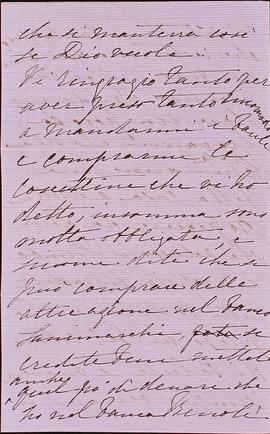 che si manterrà così
se Dio vuole.
Vi ringrazio tanto per
aver preso tanto incomodo
a mandarmi i
e comprarmi le
cosettine che vi ho
detto, insomma sono
molta obbligata, e
dite che si
può comprare delle
altre azione nel Banco
se
credete bene mettete
anche quel pò di denari che
ho nel Banca